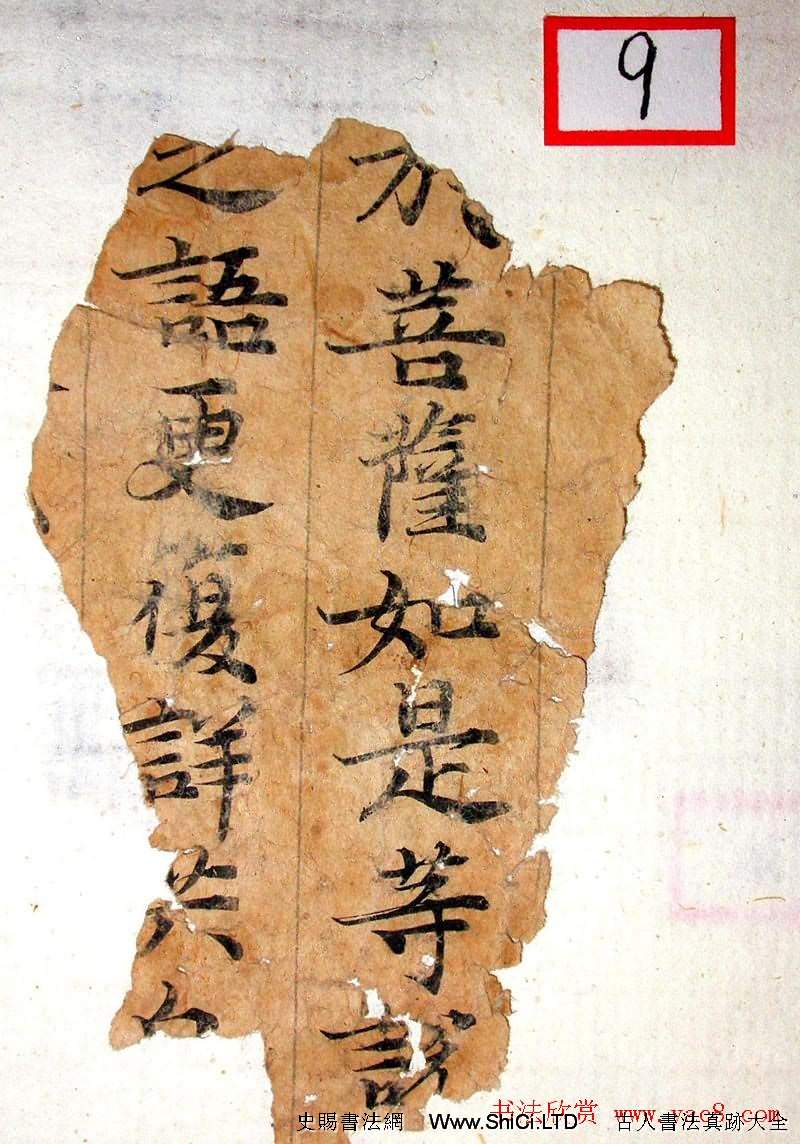 9
於菩薩如是等說
之語更復詳共
史賜書法網 Www.ShiCi.LTD 古人書法真跡大全
书法欣赏 www.yac8.com